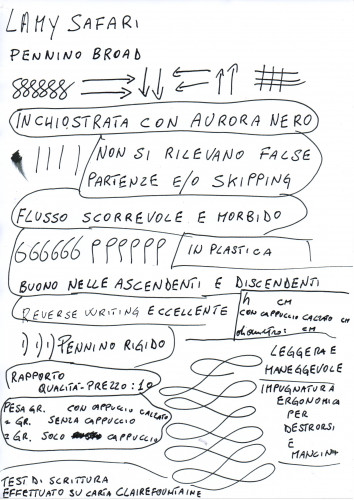 LAMY SAFARI
PENNINO BROAD
INCHIOSTRATA CON AURORA NERO
NON SI RILEVANO FALSE
PARTENZE E/O SKIPPING
FLUSSO SCORREVOLE E MORBIDO
666666 PPPPPP IN PLASTICA
BUONO NELLE ASCENDENTI E DISCENDENTI
REVERSE WRITING ECCELLENTE
h CM
CON CAPPUCCIO CALZATO CM
diametro: CM
PENNINO RIGIDO
LEGGERA E
MANEGGEVOLE
RAPPORTO
QUALITÀ-PREZZO: 10
IMPUGNATURA
ERGONOMICA
PER
DESTRORSI
E
MANCINI
PESA GR. CON CAPPUCCIO CALZATO
GR. SENZA CAPPUCCIO
GR. SOLO CAPPUCCIO
TEST DI SCRITTURA
EFFETTUATO SU CARTA CLAIREFOUNTAINE